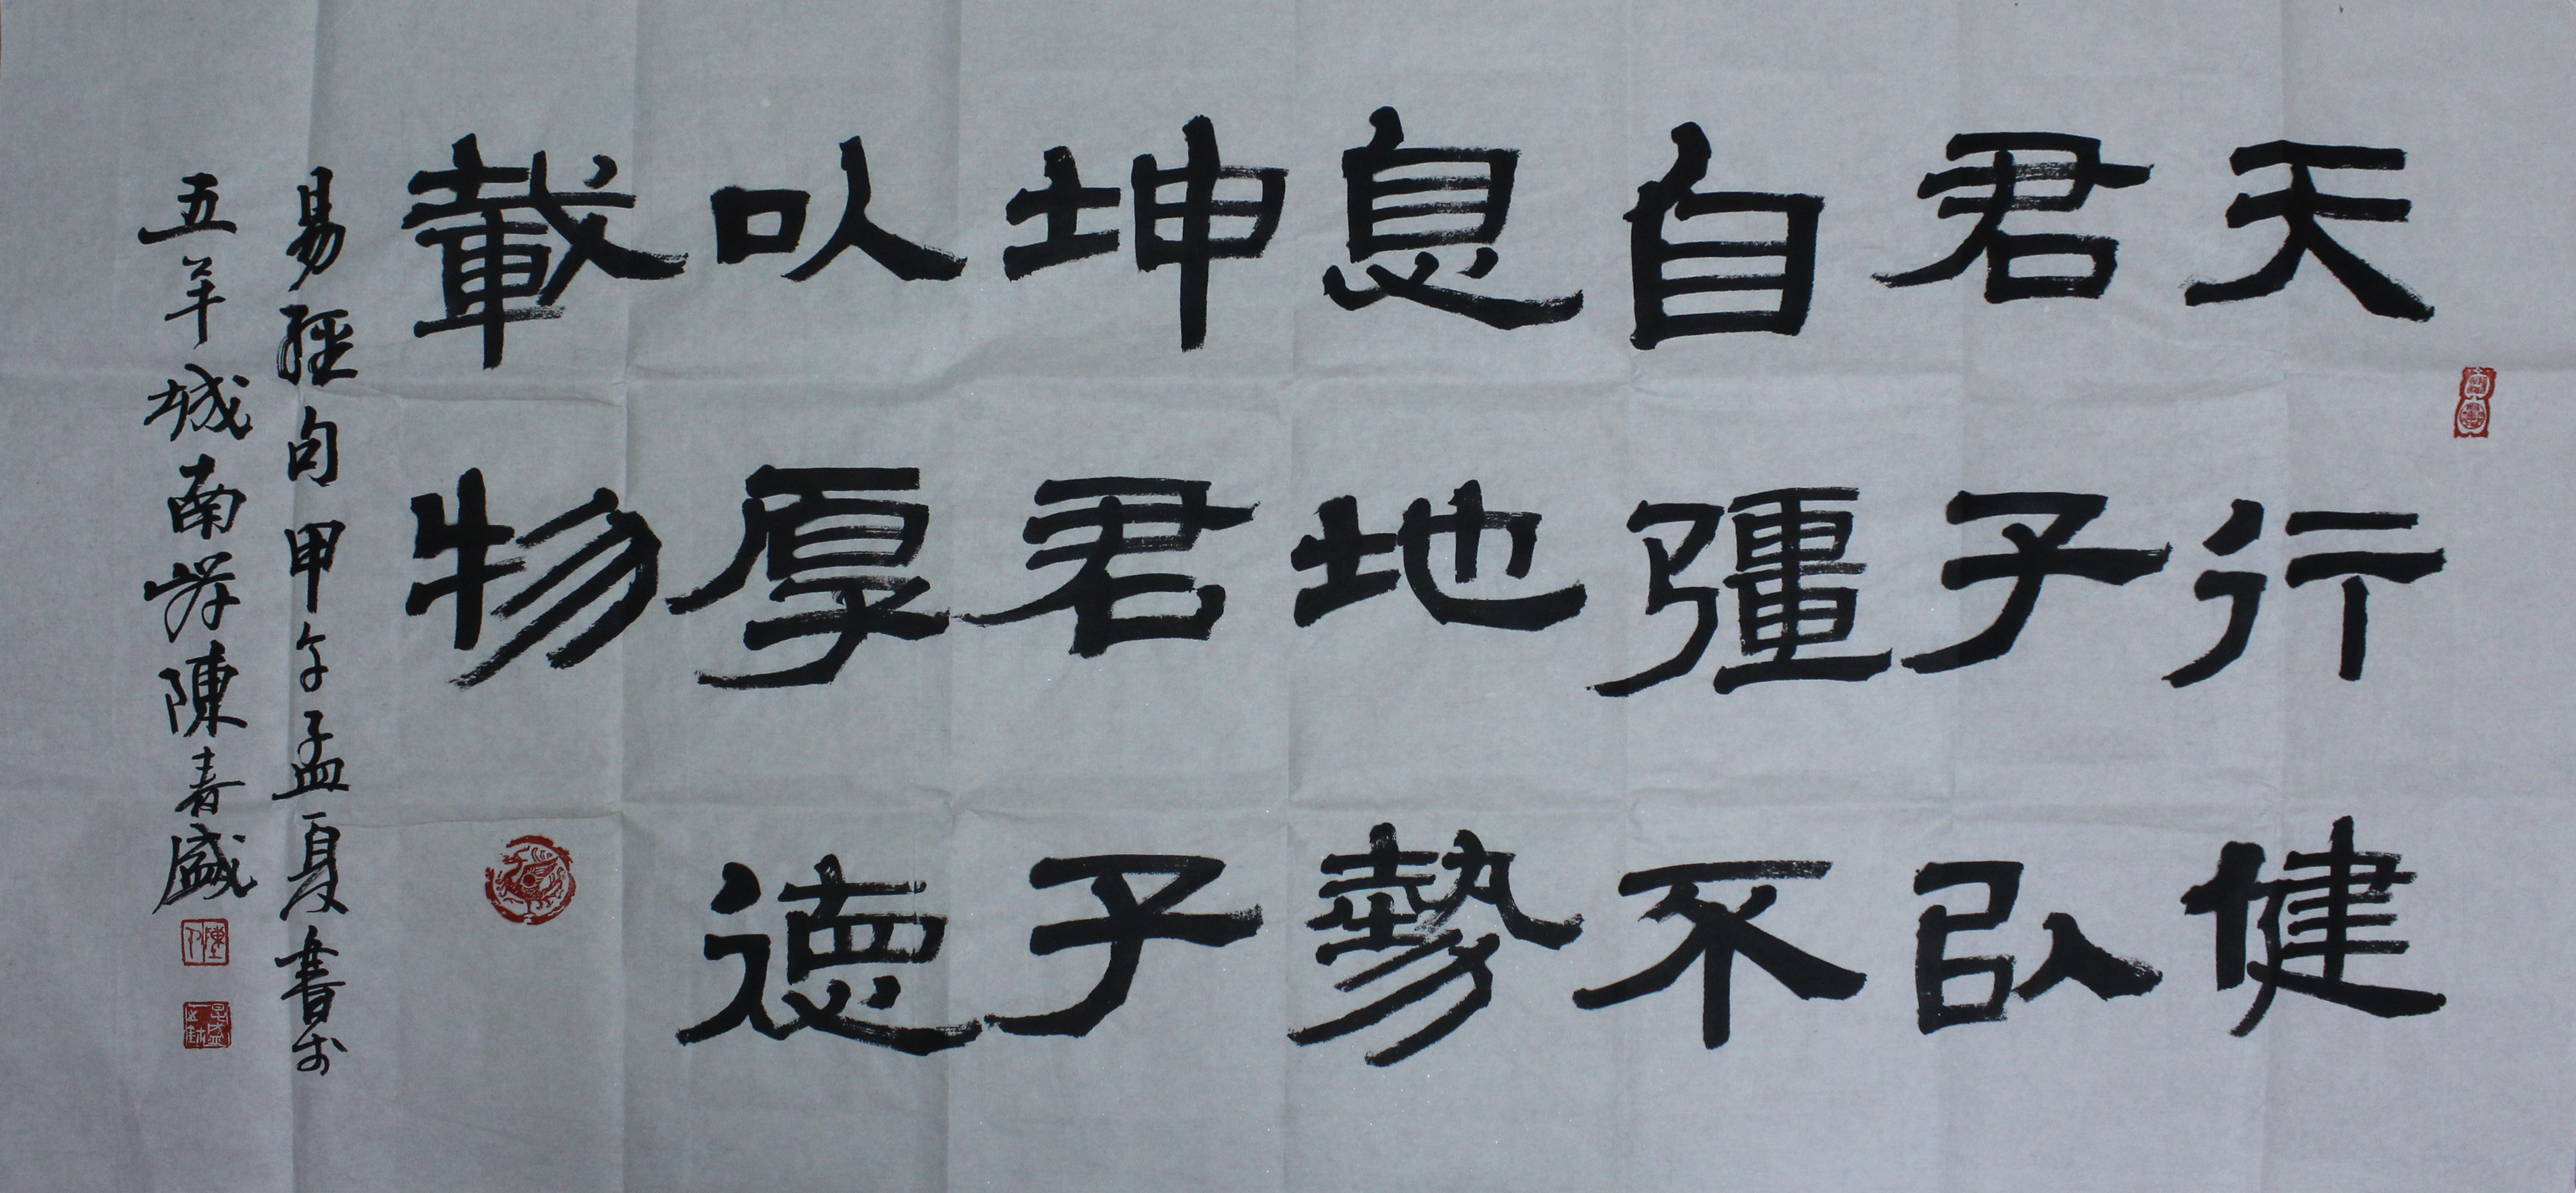 天行健
君子以
自彊不
息地勢
坤君子
以厚德
載物
易經句甲午孟夏書於
五羊城南岸陳春盛